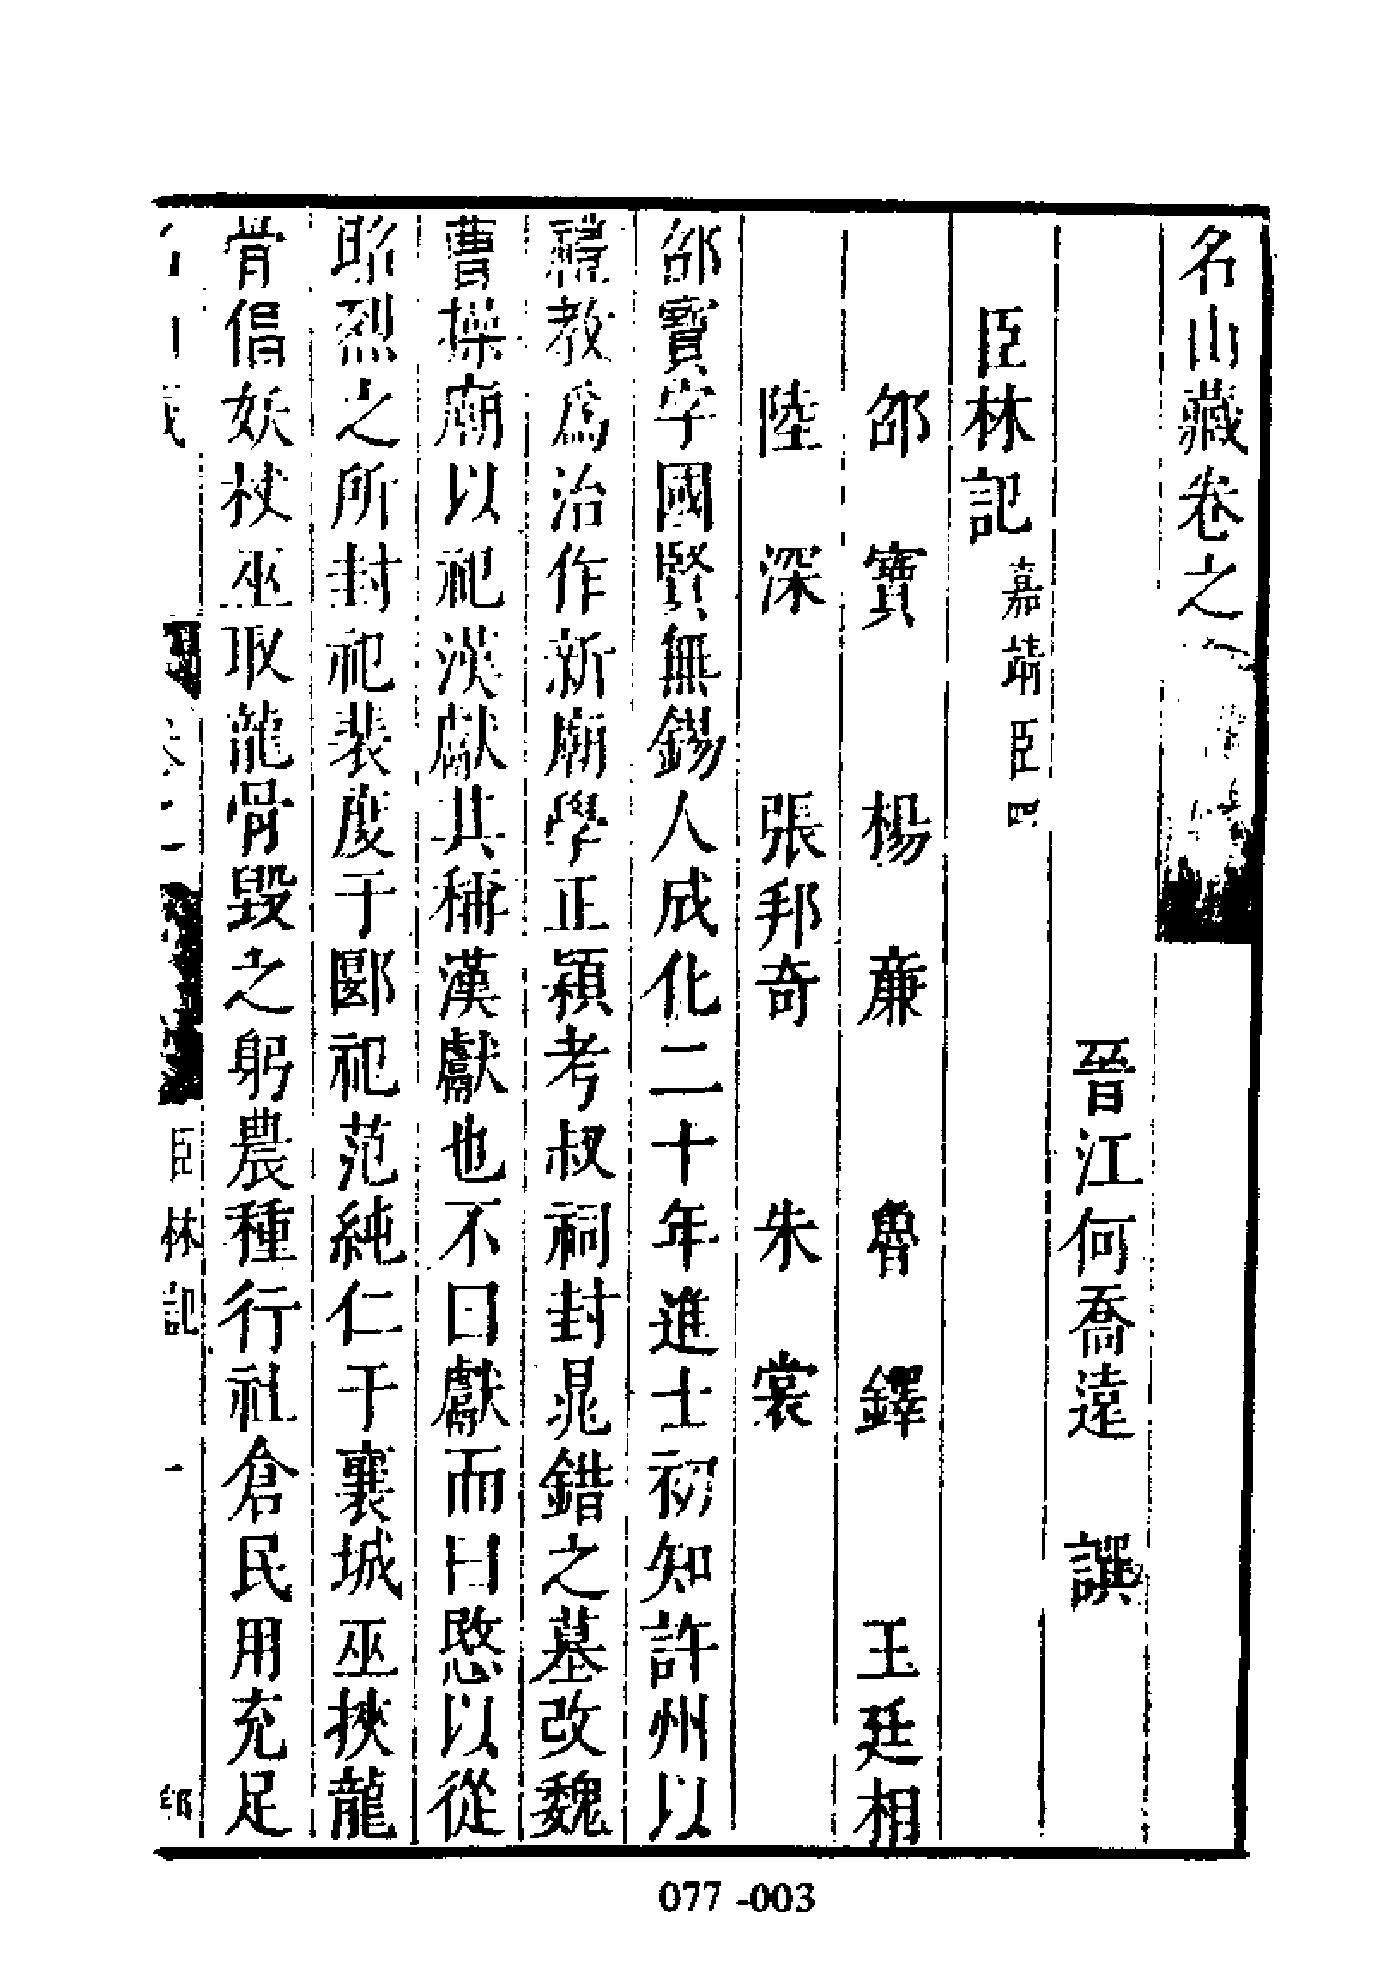 名山藏卷之
晉江何喬遠 譔
臣林記 嘉靖臣四
邵寶 楊廉 魯鐸 王廷相
陸深 張邦奇 朱裳
邵寶字國賢無錫人成化二十年進士初知許州以
禮教爲治作新廟學正穎考叔祠封鼂錯之墓改魏
曹操廟以祀漢獻其稱漢獻也不曰獻而曰愍以從
昭烈之所封祀裴度于郾祀范純仁于襄城巫挾龍
骨倡妖杖巫取龍骨毀之躬農種行社倉民用充足
臣林記 一
077 -003